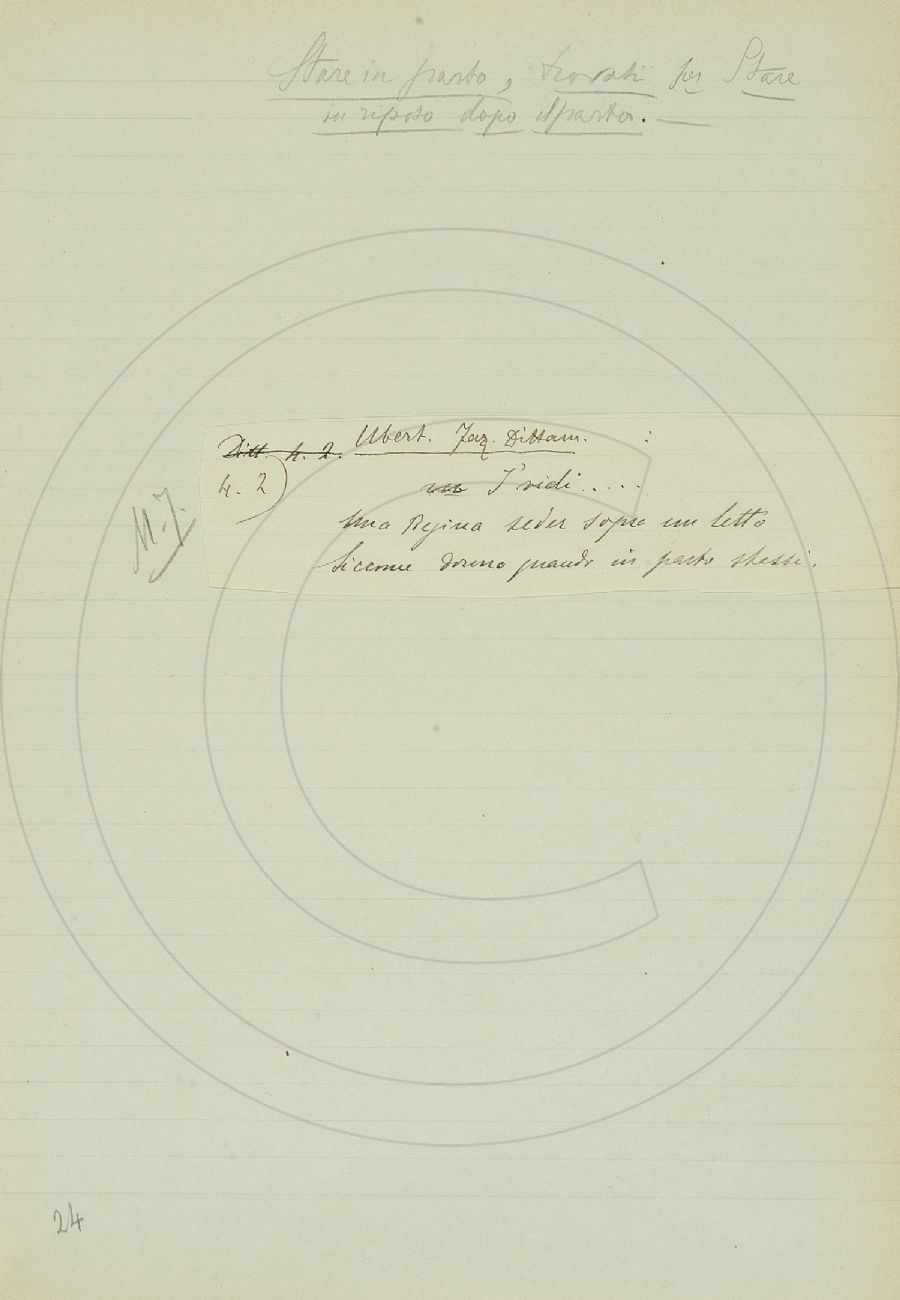 Stare in parto, trovasi per Stare
in riposo dopo il parto. —
Ditt. 4. 2. Ubert. Faz. Dittam. :
4. 2) I' vidi.....
Una Regina seder sopra un letto
Siccome donna quando in parto stessi.
24